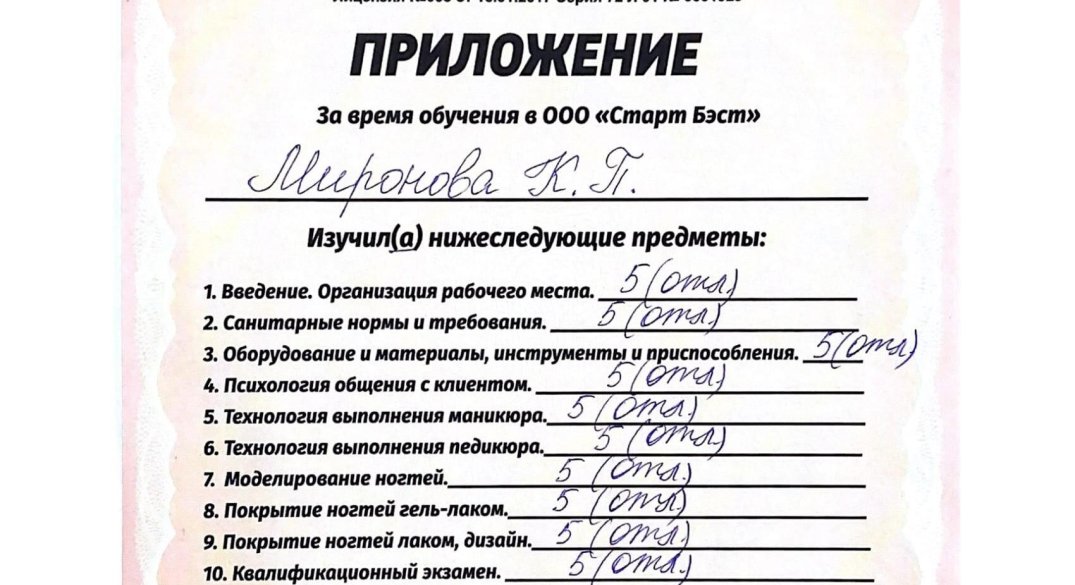 ПРИЛОЖЕНИЕ
За время обучения в ООО «Старт Бэст»
Миронова К. П.
Изучил(а) нижеследующие предметы:
1. Введение. Организация рабочего места. 5 (отл.)
2. Санитарные нормы и требования. 5 (отл.)
3. Оборудование и материалы, инструменты и приспособления. 5 (отл)
4. Психология общения с клиентом. 5 (отл.)
5. Технология выполнения маникюра. 5 (отл.)
6. Технология выполнения педикюра. 5 (отл.)
7. Моделирование ногтей. 5 (отл.)
8. Покрытие ногтей гель-лаком. 5 (отл)
9. Покрытие ногтей лаком, дизайн. 5 (отл.)
10. Квалификационный экзамен. 5 (отл.)